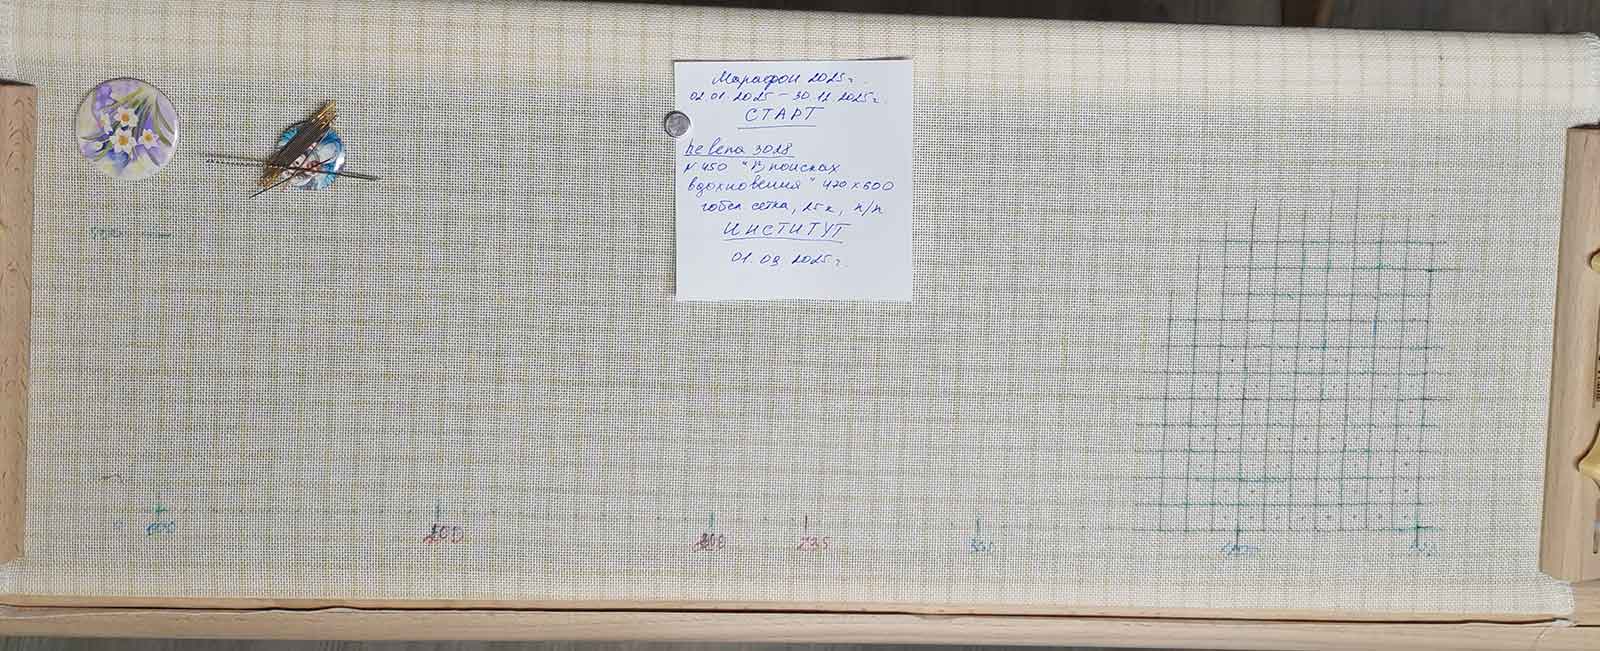 Марафон 2025г.
02.01.2025 - 30.12.2025г.
СТАРТ
helena 3028
№450 "В поисках
вдохновения" 470х600
гобел сетка, 25к, п/п
ИНСТИТУТ
01.09.2025г.
200
235